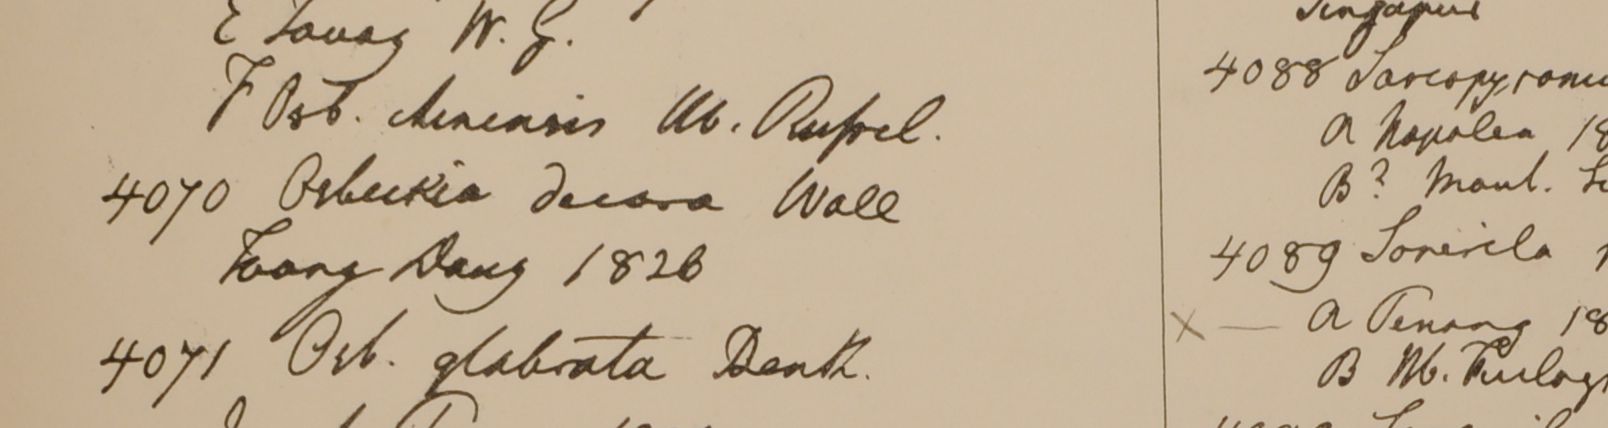 E Tavoy W. G.
F Osb. chinensis Hb. Russel.
4070 Osbeckia decora Wall
Toong Dong 1826
4071 Osb. glabrata Benth.
Singapur
4088 Sarcopyrami
A Napalea 18
B? Moul.
4089 Sonerila
X — A Penang 18
B Hb. Finlays